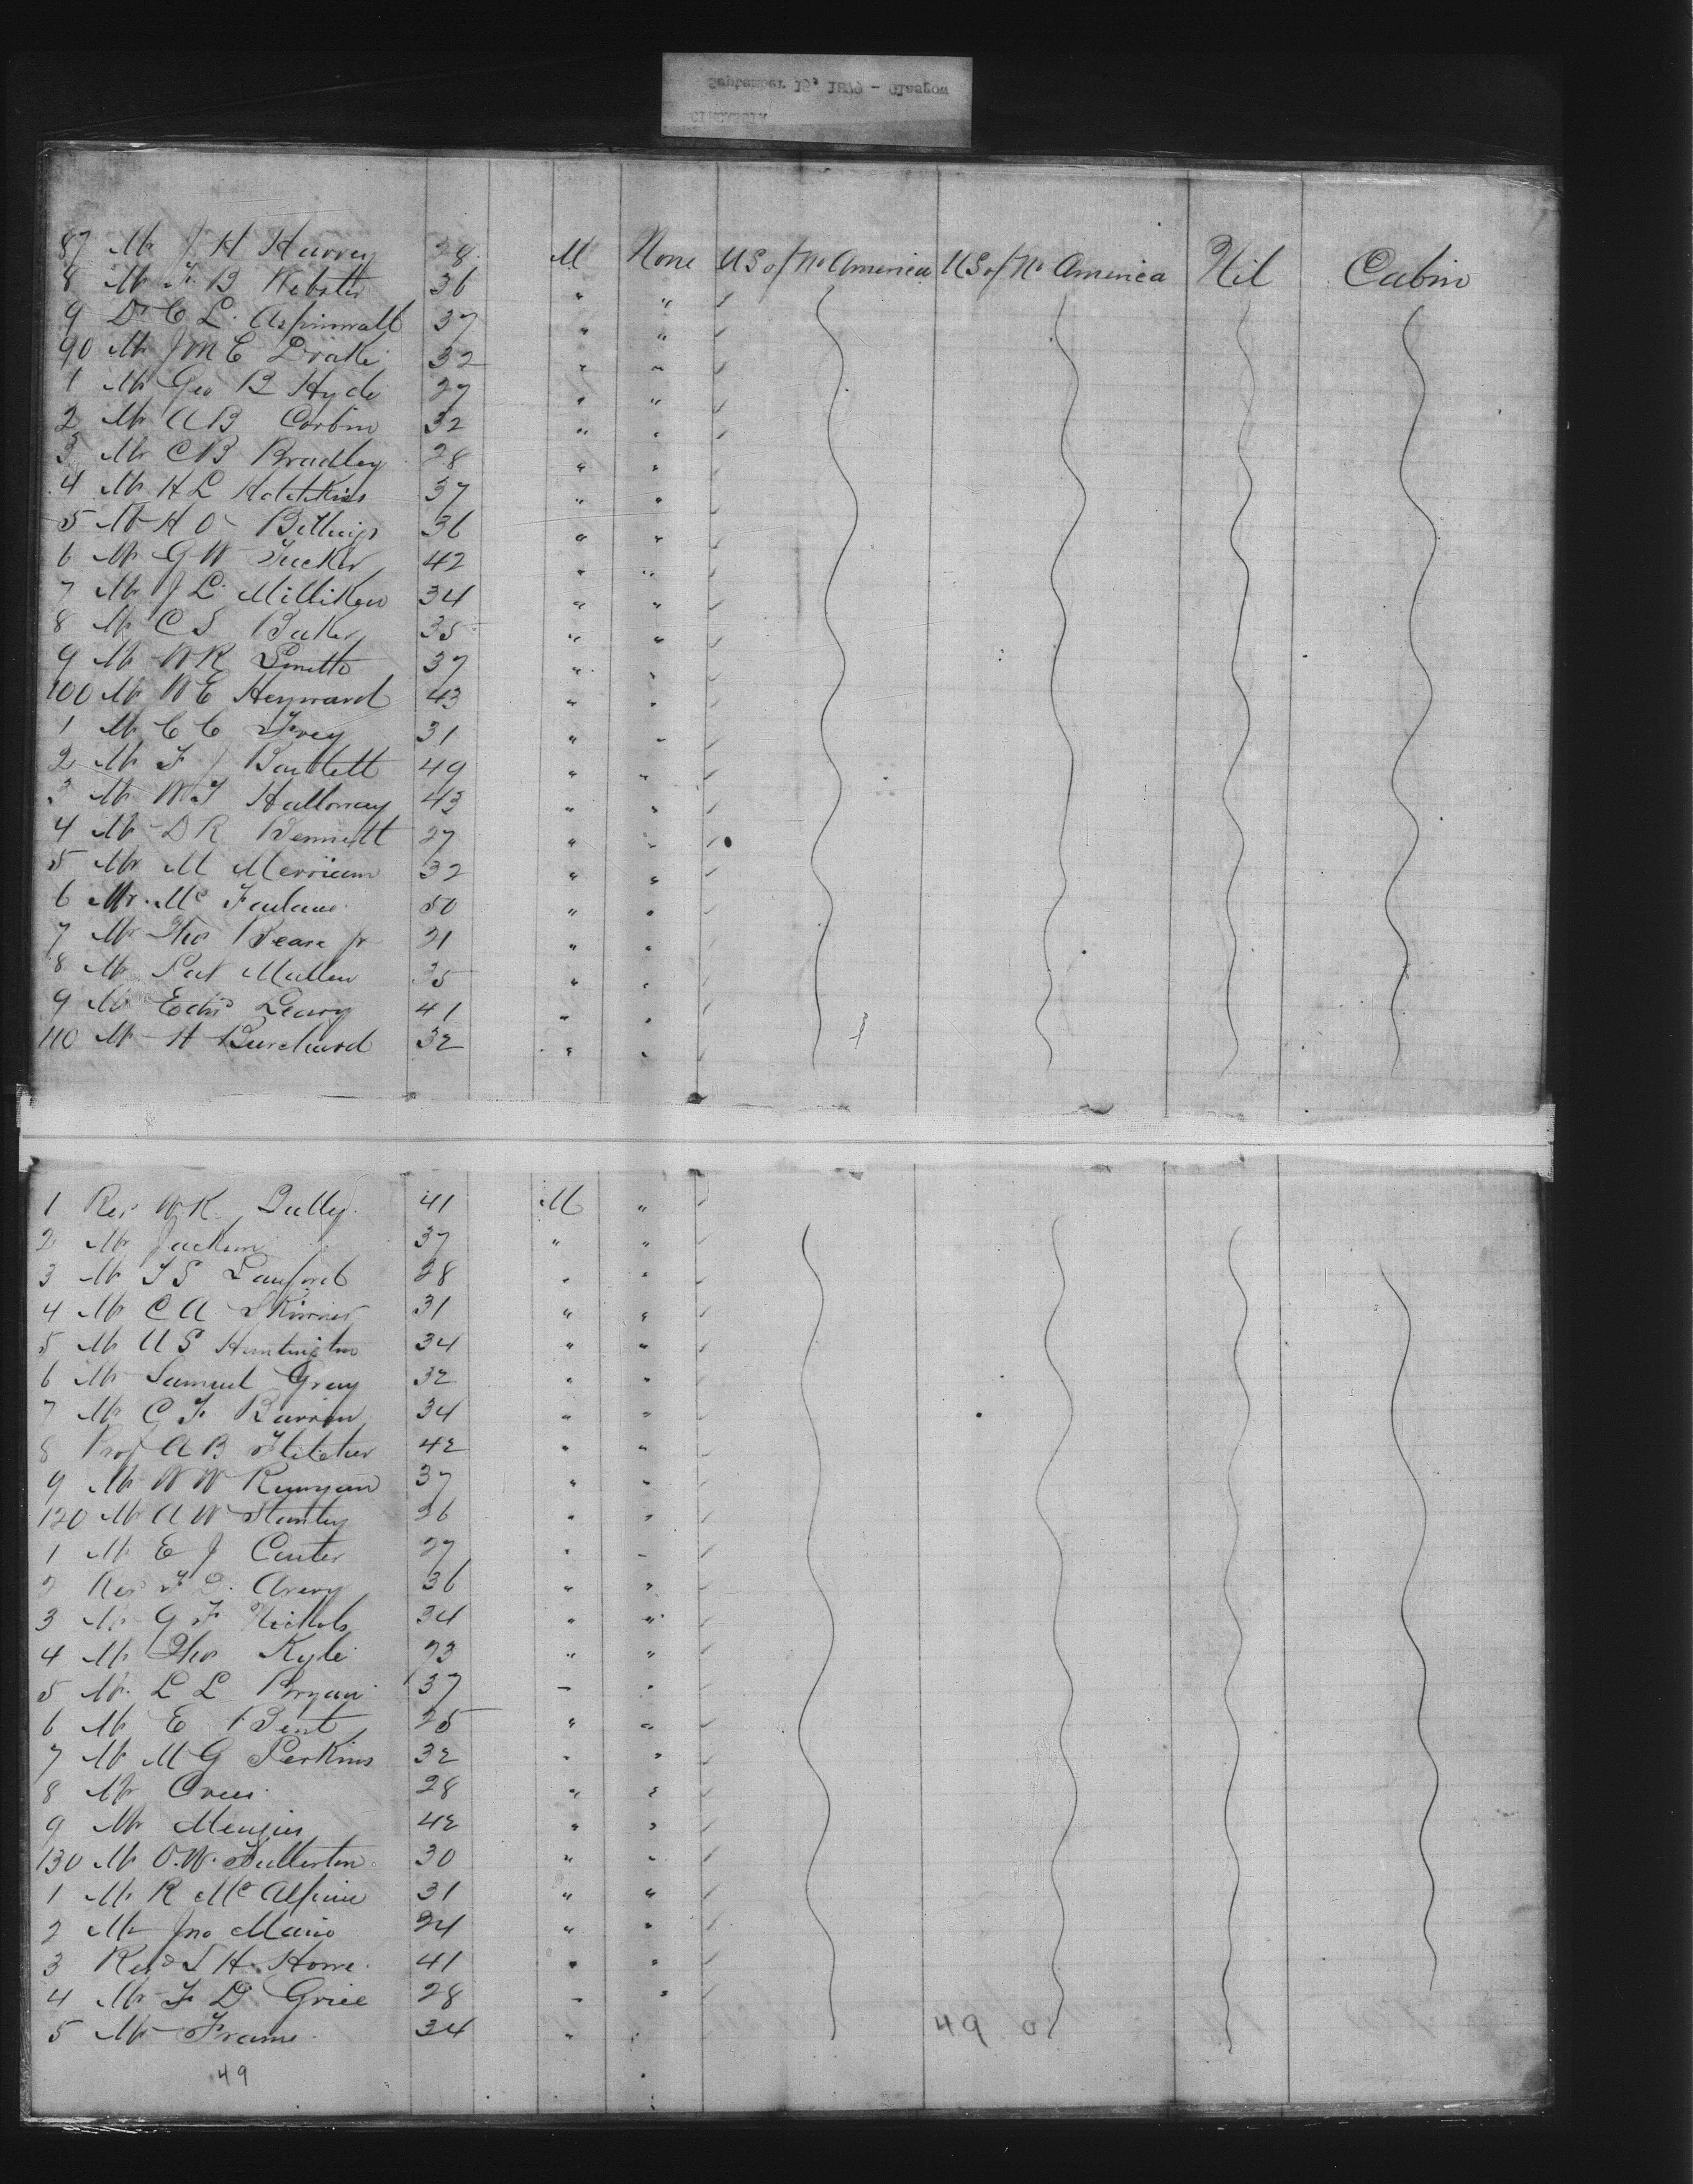 CIRCASSIA
September 15, 1879 - Glasgow
87 Mr J H Harvey 28 M None US of No America US of No America Nil Cabin
8 Mr F. B Webster 36 " " 
9 Dr C L. Aspinwall 37 " "
90 Mr J M C Drake 32 " "
1 Mr Geo B Hyde 27 " "
2 Mr A B Corbin 32 " "
3 Mr C B Bradley 28 " "
4 Mr H L Hotchkiss 37 " "
5 Mr H O Billings 36 " "
6 Mr G W Tucker 42 " "
7 Mr J L. Milliken 34 " "
8 Mr C S Baker 35 " "
9 Mr W R Smith 37 " "
100 Mr W E Heyward 43 " "
1 Mr C C Frey 31 " "
2 Mr F J Bartlett 49 " "
3 Mr W T Halloway 43 " "
4 Mr D R Bennett 27 " "
5 Mr M Merriam 32 " "
6 Mr. Mc Farlane. 50 " "
7 Mr Thos Pearce Jr 21 " "
8 Mr Pat Mullen 35 " "
9 Mr Edwd Leavy 41 " "
110 Mr H Burchard 32 " "
1 Rev W. K. Tully. 41 M "
2 Mr Jackson 37 " "
3 Mr T S Sanford 28 " "
4 Mr C A Skinner 31 " "
5 Mr U S Huntington 34 " "
6 Mr Samuel Gray 32 " "
7 Mr C F Barron 34 " "
8 Prof A B Fletcher 42 " "
9 Mr W W Runyan 37 " "
120 Mr A W Stanley 36 " "
1 Mr E J Carter 27 " "
2 Rev F D. Avery 36 " "
3 Mr G F Nichols 34 " "
4 Mr Thos Kyle 23 " "
5 Mr. L L Bryan 37 " "
6 Mr E Bent 25 " "
7 Mr M G Perkins 32 " "
8 Mr 28 " "
9 Mr Menzies 42 " "
130 Mr O. W. Fullerton. 30 " "
1 Mr R Mc Alpine 31 " "
2 Mr Jno 24 " "
3 Revd S H. Howe. 41 " "
4 Mr F D Grice 28 " "
5 Mr Frame. 34 " " 49 0
49